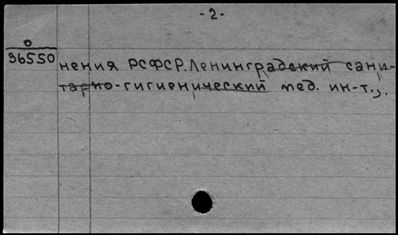 -2-
0
36550
нения РСФСР. Ленинградский сани-
тарно-гигиенический мед. ин-т.,.